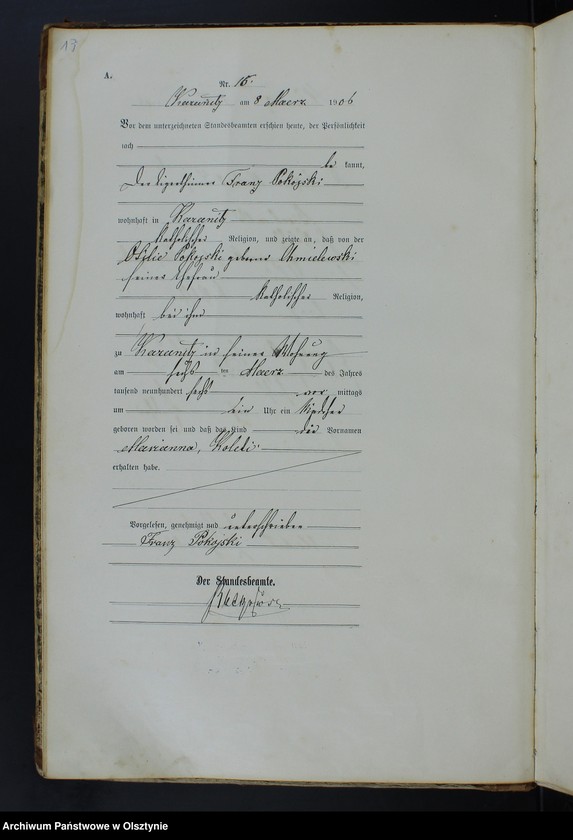 13
A.
Nr. 15.
Karnitz am 8 Maerz 1906
Vor dem unterzeichneten Standesbeamten erschien heute, der Persönlichkeit
nach
be kannt,
Der Eigenthümer Franz Pokojski
wohnhaft in
katholischer Religion, und zeigte an, daß von der
Ottilie Pokojski geborene Chmielewski
seiner Ehefrau
katholischer Religion,
wohnhaft bei ihm
zu in seiner Wohnung
am sechs ten Maerz des Jahres
tausend neunhundert sechs vor mittags
um ein Uhr ein Mädchen
geboren worden sei und daß das Kind die Vornamen
Marianna,
erhalten habe.
Vorgelesen, genehmigt und unterschrieben
Franz Pokojski
Der Standesbeamte.
Archiwum Państwowe w Olsztynie